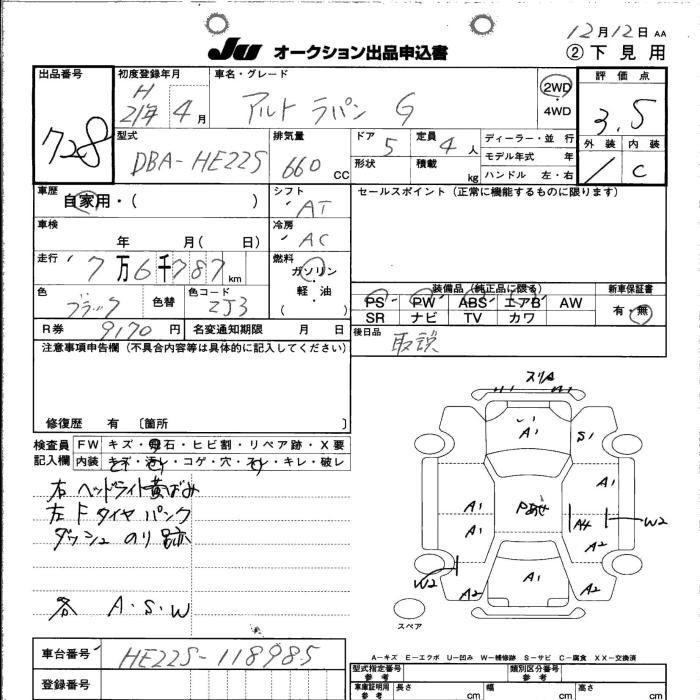 12月12日 AA
JU オークション出品申込書 ②下見用
出品番号 728
初度登録年月 H 21年 4月
車名・グレード アルト ラパン G
2WD
4WD
評価点 3.5
外装 内装 C
型式 DBA-HE22S
排気量 660 CC
ドア 5 定員 4人
形状 積載 kg
ディーラー・並行
モデル年式 年
ハンドル 左・右
車歴 自家用・( )
シフト AT
セールスポイント(正常に機能するものに限ります)
車検 年 月( 日)
冷房 AC
走行 7万6千787km
燃料 ガソリン
軽・油
( )
色 ブラック 色替 色コード ZJ3
装備品(純正品に限る) 新車保証書
PS PW ABS エアB AW 有・無
SR ナビ TV カワ
R券 9170円 名変通知期限 月 日
後日品 取説
注意事項申告欄(不具合内容等は具体的に記入してください)
修復歴 有 〔箇所 〕
検査員 FW キズ・飛石・ヒビ割・リペア跡・X要
記入欄 内装 キズ・汚れ・コゲ・穴・スレ・キレ・破レ
右 ヘッドライト黄ばみ
左 F タイヤ パンク
ダッシュ のり跡
各 A・S・W
スリA
A1 S1
A1
A1 Pあせ A4 W2
A1 A2
W2 A2 A1 A2
スペア
車台番号 HE22S-118985
登録番号
A-キズ E-エクボ U-凹み W-補修跡 S-サビ C-腐食 XX-交換済
型式指定番号 参考 類別区分番号 参考
車庫証明用 参考 長さ cm 幅 cm 高さ cm